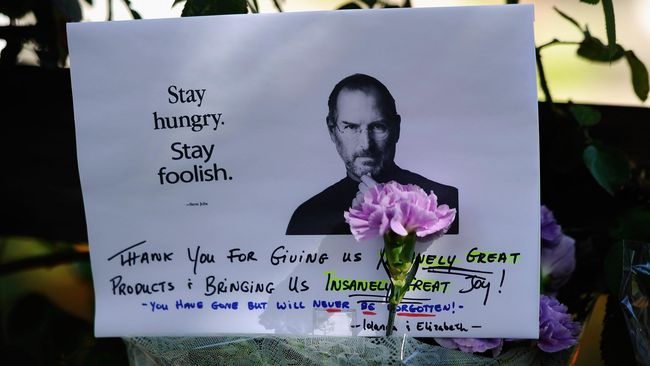 Stay
hungry.
Stay
foolish.
—Steve Jobs
THANK YOU FOR GIVING US GREAT
PRODUCTS & BRINGING US INSANELY GREAT JOY!
-YOU HAVE GONE BUT WILL NEVER BE FORGOTTEN!-
& Elizabeth —